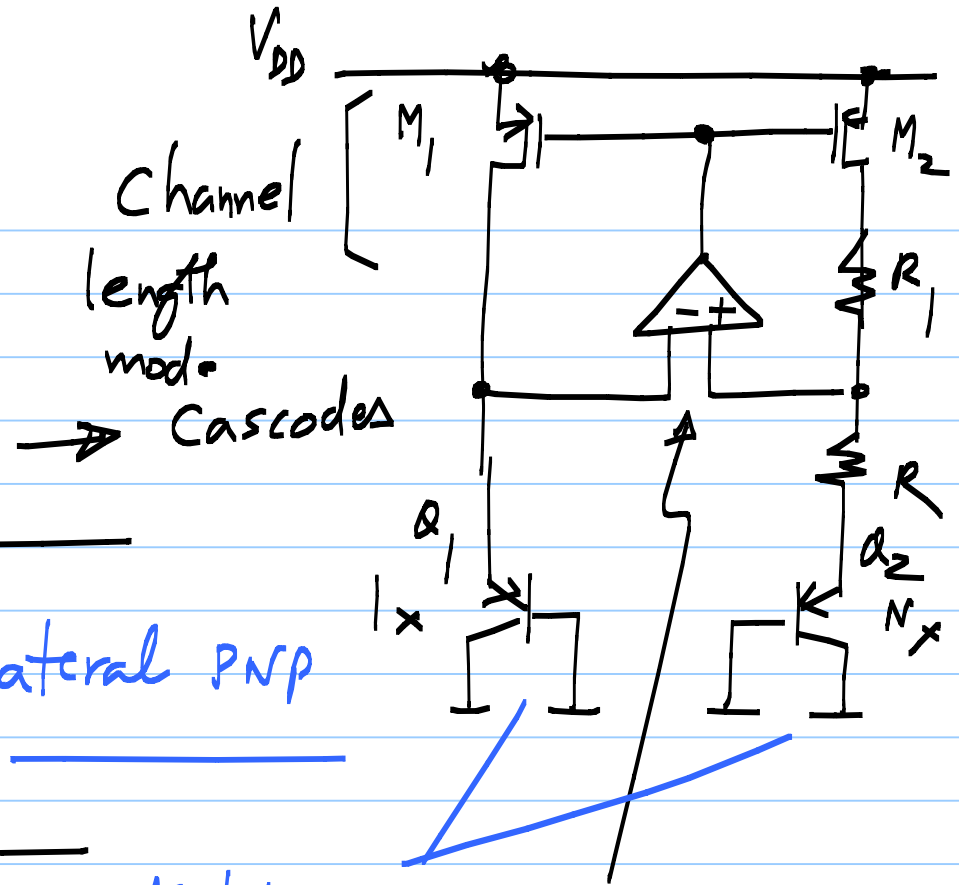 V_DD
M_1
M_2
Channel
length
mode
→ Cascodes
R_1
- +
R
Q_1
1x
Q_2
Nx
ateral PNP